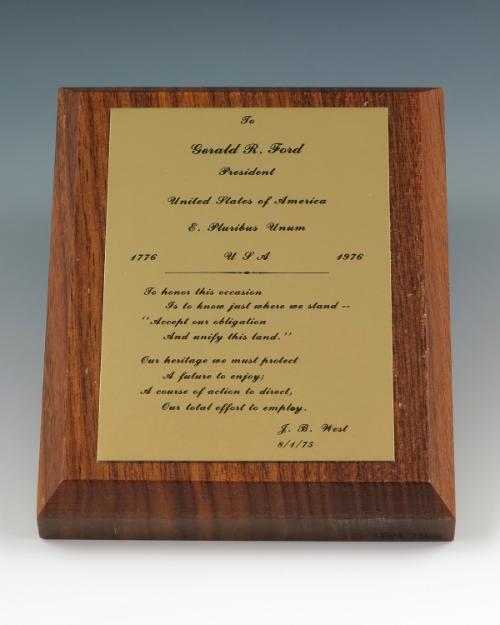 To
Gerald R. Ford
President
United States of America
E. Pluribus Unum
1776 U S A 1976
To honor this occasion
Is to know just where we stand --
"Accept our obligation
And unify this land."
Our heritage we must protect
A future to enjoy;
A course of action to direct,
Our total effort to employ.
J. B. West
8/4/75